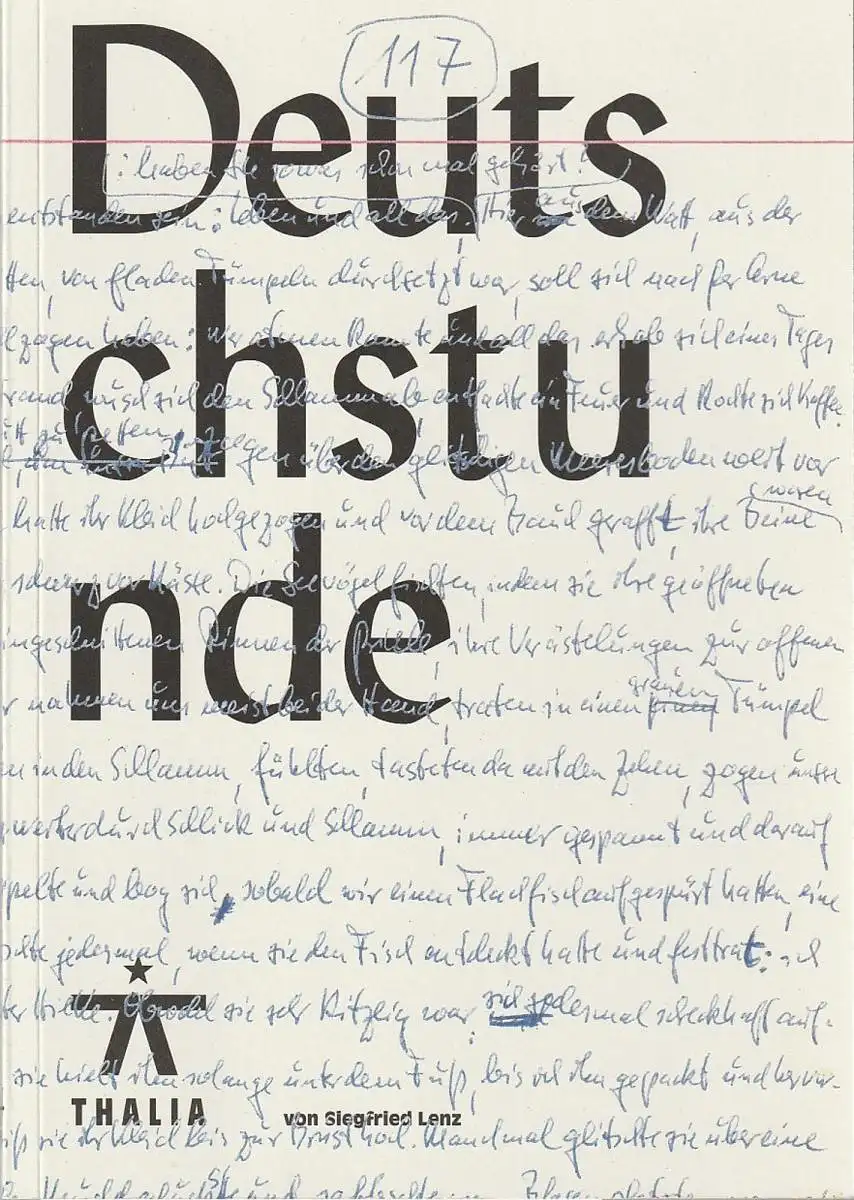 117
Deuts
chstu
nde
: haben Sie sowas schon mal gehört?
entstanden sein: Leben und all das. Hier aus dem Watt, aus der
von Fladen Tümpeln durchsetzt war, soll sich nach
haben: wer atmen konnte und all das erhob sich eines Tages
wusch sich den Schlamm ab entfachte ein Feuer und kochte sich Kaffee.
zogen über den glitschigen Meeresboden weit vor
hatte ihr Kleid hochgezogen und vor dem Bauch gerafft, ihre Beine waren
schwarz vor Nässe. Die Seevögel fischten, indem sie ihre geöffneten
eingeschnittenen Rinnen der Priele, ihre Verästelungen zur offenen
nahmen uns meist bei der Hand, traten in einen grauen Tümpel
in den Schlamm, fühlten, tasteten da mit den Zehen, zogen unsre
weiter durch Schlick und Schlamm, immer gespannt und darauf
und bog sich, sobald wir einen Flachfisch aufgespürt hatten, eine
jedesmal, wenn sie den Fisch entdeckt hatte und festtrat: ich
Obwohl sie sehr kitzlig war, jedesmal schreckhaft auf-
sie hielt ihn solange unter dem Fuß, bis ich ihn gepackt und hervor-
THALIA
von Siegfried Lenz
sie ihr Kleid bis zur Brust hoch. Manchmal glitschte sie über eine